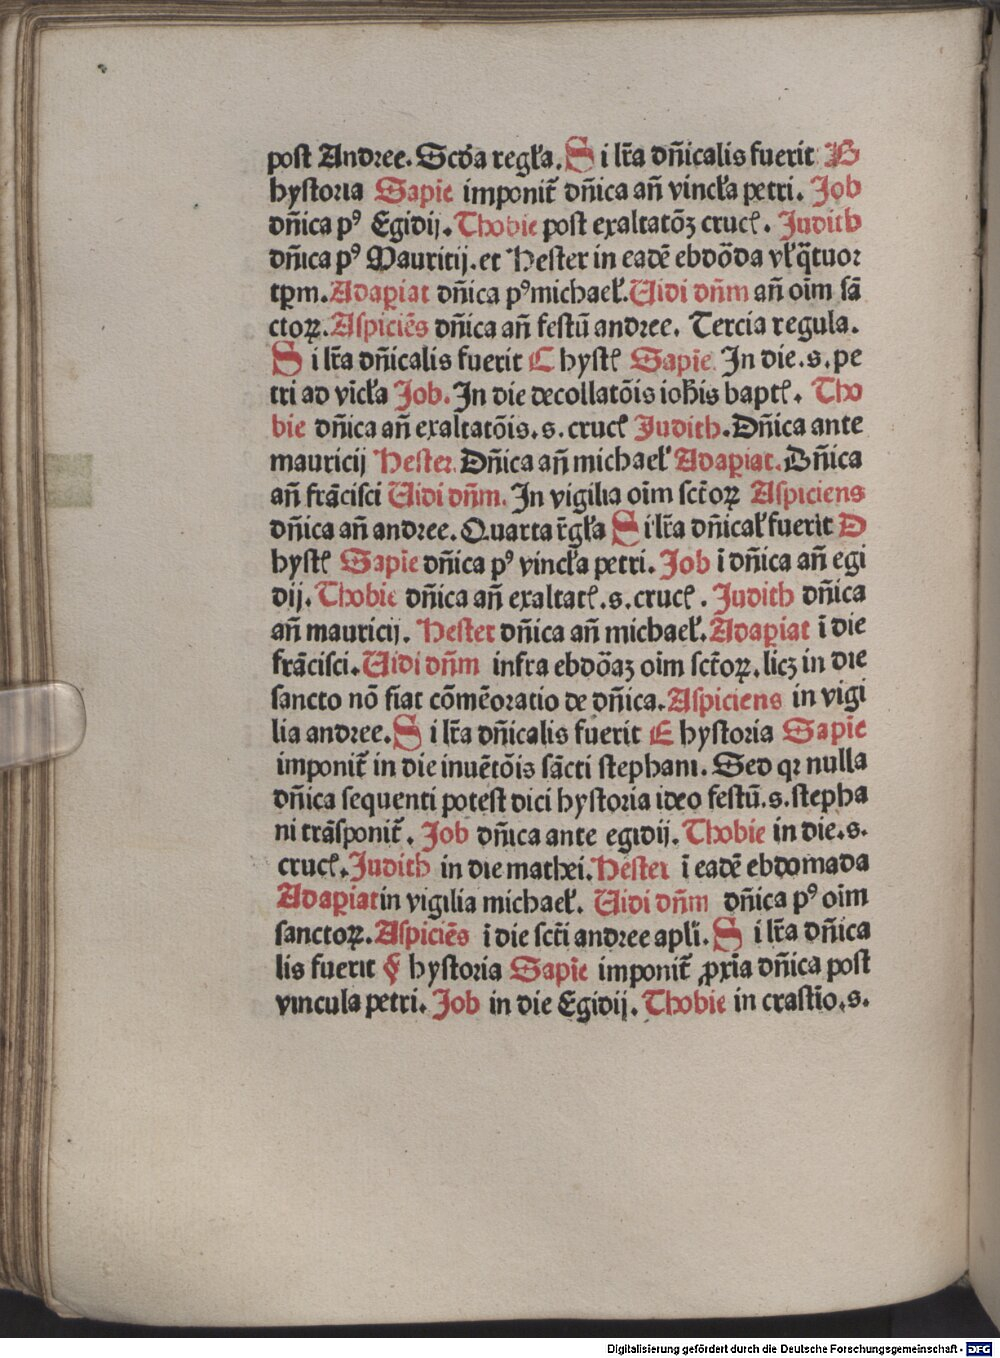 post Andree. Scďa regl̵a. Si lr̄a dn̄icalis fuerit B
hystoria Sapīe imponit̄ dn̄ica an̄ vincl̵a petri. Job
dn̄ica pꝰ Egidij. Thobie post exaltatōꝫ crucꝭ. Judith
dn̄ica pꝰ Mauricij. et Hester in eadē ebdōda vl̵ q̄tuor
tp̄m. Adap̄iat dn̄ica pꝰ michael̵. Uidi dn̄m an̄ oīm sā
ctoꝝ. Aspiciēs dn̄ica an̄ festū andree. Tercia regula.
Si lr̄a dn̄icalis fuerit C hystꝭ Sapīe. In die .s. pe
tri ad vīcl̵a Job. In die decollatōis ioh̄is baptꝭ. Tho
bie dn̄ica an̄ exaltatōis .s. crucꝭ Judith. Dn̄ica ante
mauricij Hester. Dn̄ica an̄ michael̵ Adap̄iat. Dn̄ica
an̄ frācisci Uidi dn̄m. In vigilia oīm sct̄oꝝ Aspiciens
dn̄ica an̄ andree. Quarta r̄gl̵a Si lr̄a dn̄ical̵ fuerit D
hystꝭ Sapīe dn̄ica pꝰ vincl̵a petri. Job ī dn̄ica an̄ egi
dij. Thobie dn̄ica an̄ exaltatꝭ .s. crucꝭ. Judith dn̄ica
an̄ mauricij. Hester dn̄ica an̄ michael̵. Adap̄iat ī die
frācisci. Uidi dn̄m infra ebdōaꝫ oīm sct̄oꝝ. licꝫ in die
sancto nō fiat cōmēoratio de dn̄ica. Aspiciens in vigi
lia andree. Si lr̄a dn̄icalis fuerit E hystoria Sapīe
imponit̄ in die inuētōis sācti stephani. Sed qꝛ nulla
dn̄ica sequenti potest dici hystoria ideo festū .s. stepha
ni trāsponit̄. Job dn̄ica ante egidij. Thobie in die .s.
crucꝭ. Judith in die mathei. Hester ī eadē ebdomada
Adap̄iat in vigilia michael̵. Uidi dn̄m dn̄ica pꝰ oīm
sanctoꝝ. Aspiciēs ī die sct̄i andree apl̄i. Si lr̄a dn̄ica
lis fuerit F hystoria Sapīe imponit̄ ꝓxīa dn̄ica post
vincula petri. Job in die Egidij. Thobie in crastīo .s.
Digitalisierung gefördert durch die Deutsche Forschungsgemeinschaft - DFG